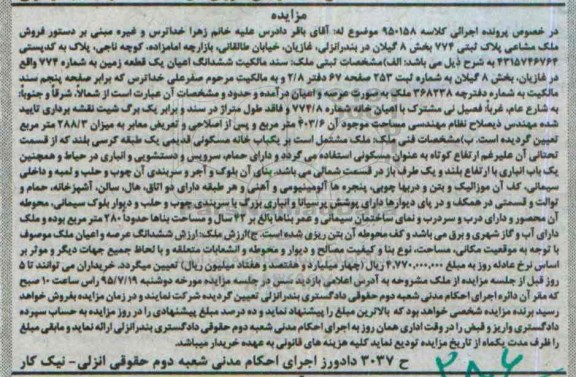 مزایده
در خصوص پرونده اجرائی کلاسه ۹۵۰۱۵۸ موضوع له: آقای باقر دادرس علیه خانم زهرا خداترس و غیره مبنی بر دستور فروش
ملک مشاعی پلاک ثبتی ۷۷۴ بخش ۸ گیلان در بندرانزلی، غازیان، خیابان طالقانی، بازارچه امامزاده، کوچه ناجی، پلاک به کدپستی
۴۳۱۵۷۴۶۷۶۴ به شرح ذیل می باشد: الف)مشخصات ثبتی ملک: سند مالکیت ششدانگ اعیان یک قطعه زمین به شماره ۷۷۴ واقع
در غازیان، بخش ۸ گیلان به شماره ثبت ۲۵۳ صفحه ۶۷ دفتر ۲/۸ و به مالکیت مرحوم صفرعلی خداترس که برابر صفحه پنجم سند
مالکیت به شماره دفترچه ۳۶۸۲۳۸ ملک به صورت عرصه و اعیان درآمده و حدود و مشخصات آن عبارت است از شمالاً، شرقاً و جنوباً:
به شارع عام، غرباً: فصیل نی مشترک با اعیان خانه شماره ۷۷۴/۸ و فاقد طول متراژ در سند و برابر یک برگ شیت نقشه برداری تایید
شده مهندس ذیصلاح نظام مهندسی مساحت موجود آن ۴۰۳/۶ متر مربع و پس از اصلاحی و تعریض معابر به میزان ۲۸۸/۳ متر مربع
تعیین گردیده است. ب)مشخصات فنی ملک: ملک مشتمل است بر یکباب خانه مسکونی قدیمی یک طبقه کرسی بلند که از قسمت
تحتانی آن علیرغم ارتفاع کوتاه به عنوان مسکونی استفاده می گردد و دارای حمام، سرویس و دستشویی و انباری در حیاط و همچنین
یک باب انباری با ارتفاع بلند و یک طرف باز در قسمت شمالی می باشد. بنای آن بلوک و آجر و سربندی آن چوب و حلب و لمبه و داخلی
سیمانی، کف آن موزائیک و بتن و دربها چوبی، پنجره ها آلومینیومی و آهنی و هر طبقه دارای دو اتاق، هال، سالن، آشپزخانه، حمام و
توالت و قسمتی در همکف و در پای دیوارها دارای پوشش پرسیانا و انباری بزرگ با سربندی چوب و حلب و دیوار بلوک سیمانی، محوطه
آن محصور و دارای درب و سردرب و نمای ساختمان سیمانی و عمر بناها بالغ بر ۴۳ سال و مساحت بناها حدوداً ۲۸۰ متر مربع بوده و ملک
دارای آب و گاز شهری و برق می باشد و کف محوطه آن بتن ریزی شده است. ج)ارزش ملک: ارزش ششدانگ عرصه و اعیان ملک موصوف
با توجه به موقعیت مکانی، مساحت، نوع بنا و کیفیت مصالح و دیوار و محوطه و انشعابات متعلقه و با لحاظ جمیع جهات دیگر و موثر بر
اساس نرخ عادله روز به مبلغ ۴.۷۷۰.۰۰۰.۰۰۰ ریال (چهار میلیارد و هفتصد و هفتاد میلیون ریال) تعیین میگردد. خریداران می توانند تا ۵
روز قبل از جلسه مزایده از ملک مشروحه به آدرس اعلامی بازدید سپس در جلسه مزایده مورخه دوشنبه ۹۵/۷/۱۹ راس ساعت ۱۰ صبح
که مقر آن دائره اجرای احکام مدنی شعبه دوم حقوقی دادگستری بندرانزلی تعیین گردیده شرکت نمایند و در زمان مزایده بفروش خواهد
رسید برنده مزایده شخصی خواهد بود که بالاترین مبلغ را پیشنهاد نماید و ده درصد مبلغ پیشنهادی را در روز مزایده به حساب سپرده
دادگستری واریز و قبض را در وقت اداری همان روز به اجرای احکام مدنی شعبه دوم حقوقی دادگستری بندرانزلی ارائه نماید و مابقی مبلغ
را ظرف مدت یکماه از تاریخ مزایده تودیع نماید کلیه هزینه های قانونی به عهده خریدار میباشد.
ح ۳۰۳۷ دادورز اجرای احکام مدنی شعبه دوم حقوقی انزلی- نیک کار